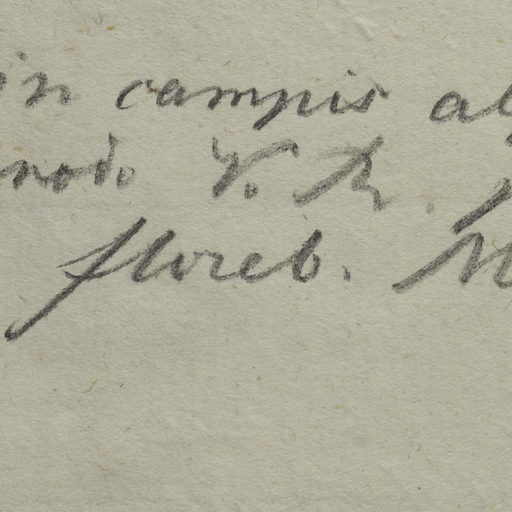 in campis al
modo V. R.
floreb. M